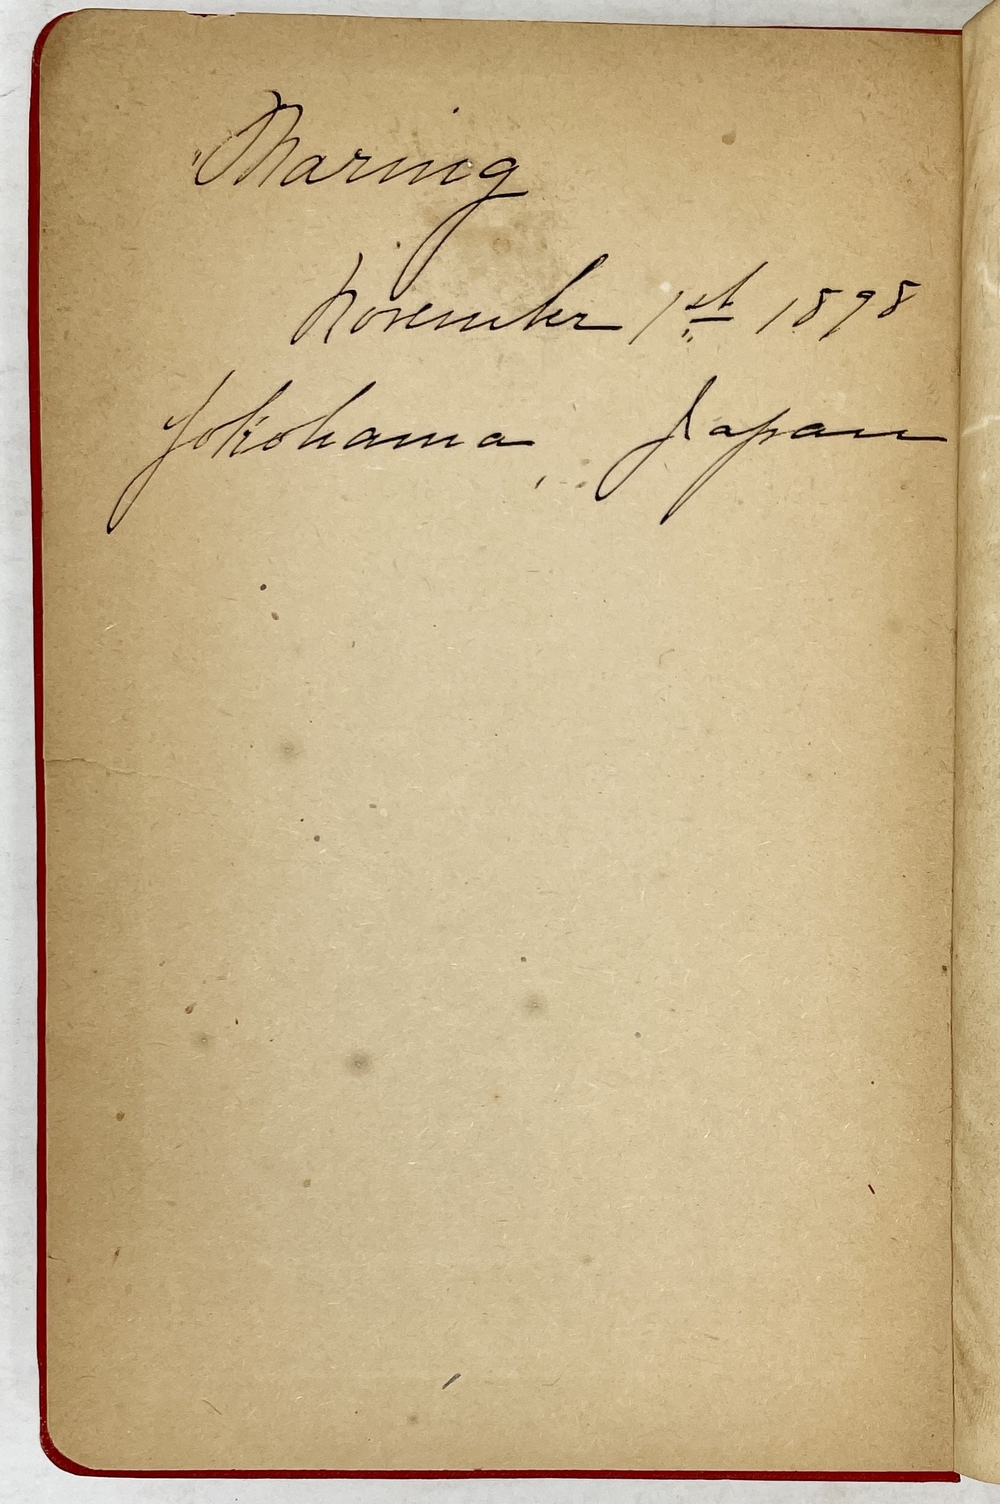 Waring
November 1st 1898
Yokohama Japan